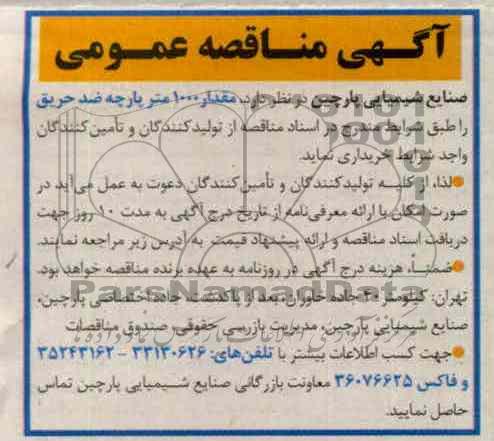 آگهی مناقصه عمومی
صنایع شیمیایی پارچین در نظر دارد، مقدار ۱۰۰۰ متر پارچه ضد حریق
را طبق شرایط مندرج در اسناد مناقصه از تولیدکنندگان و تأمین‌کنندگان
واجد شرایط خریداری نماید.
لذا، از کلیه تولیدکنندگان و تأمین‌کنندگان دعوت به عمل می‌آید در
صورت امکان با ارائه معرفی‌نامه از تاریخ درج آگهی به مدت ۱۰ روز جهت
دریافت اسناد مناقصه و ارائه پیشنهاد قیمت به آدرس زیر مراجعه نمایند.
ضمناً، هزینه درج آگهی در روزنامه به عهده برنده مناقصه خواهد بود.
ParsNamadData
تهران: کیلومتر ۲۰ جاده خاوران، بعد از پاکدشت، جاده اختصاصی پارچین،
صنایع شیمیایی پارچین، مدیریت بازرسی حقوقی، صندوق مناقصات
جهت کسب اطلاعات بیشتر با تلفن‌های: ۳۳۱۳۰۶۲۶ - ۳۵۲۴۳۱۶۲
و فاکس ۳۶۰۷۶۶۲۵ معاونت بازرگانی صنایع شیمیایی پارچین تماس
حاصل نمایید.